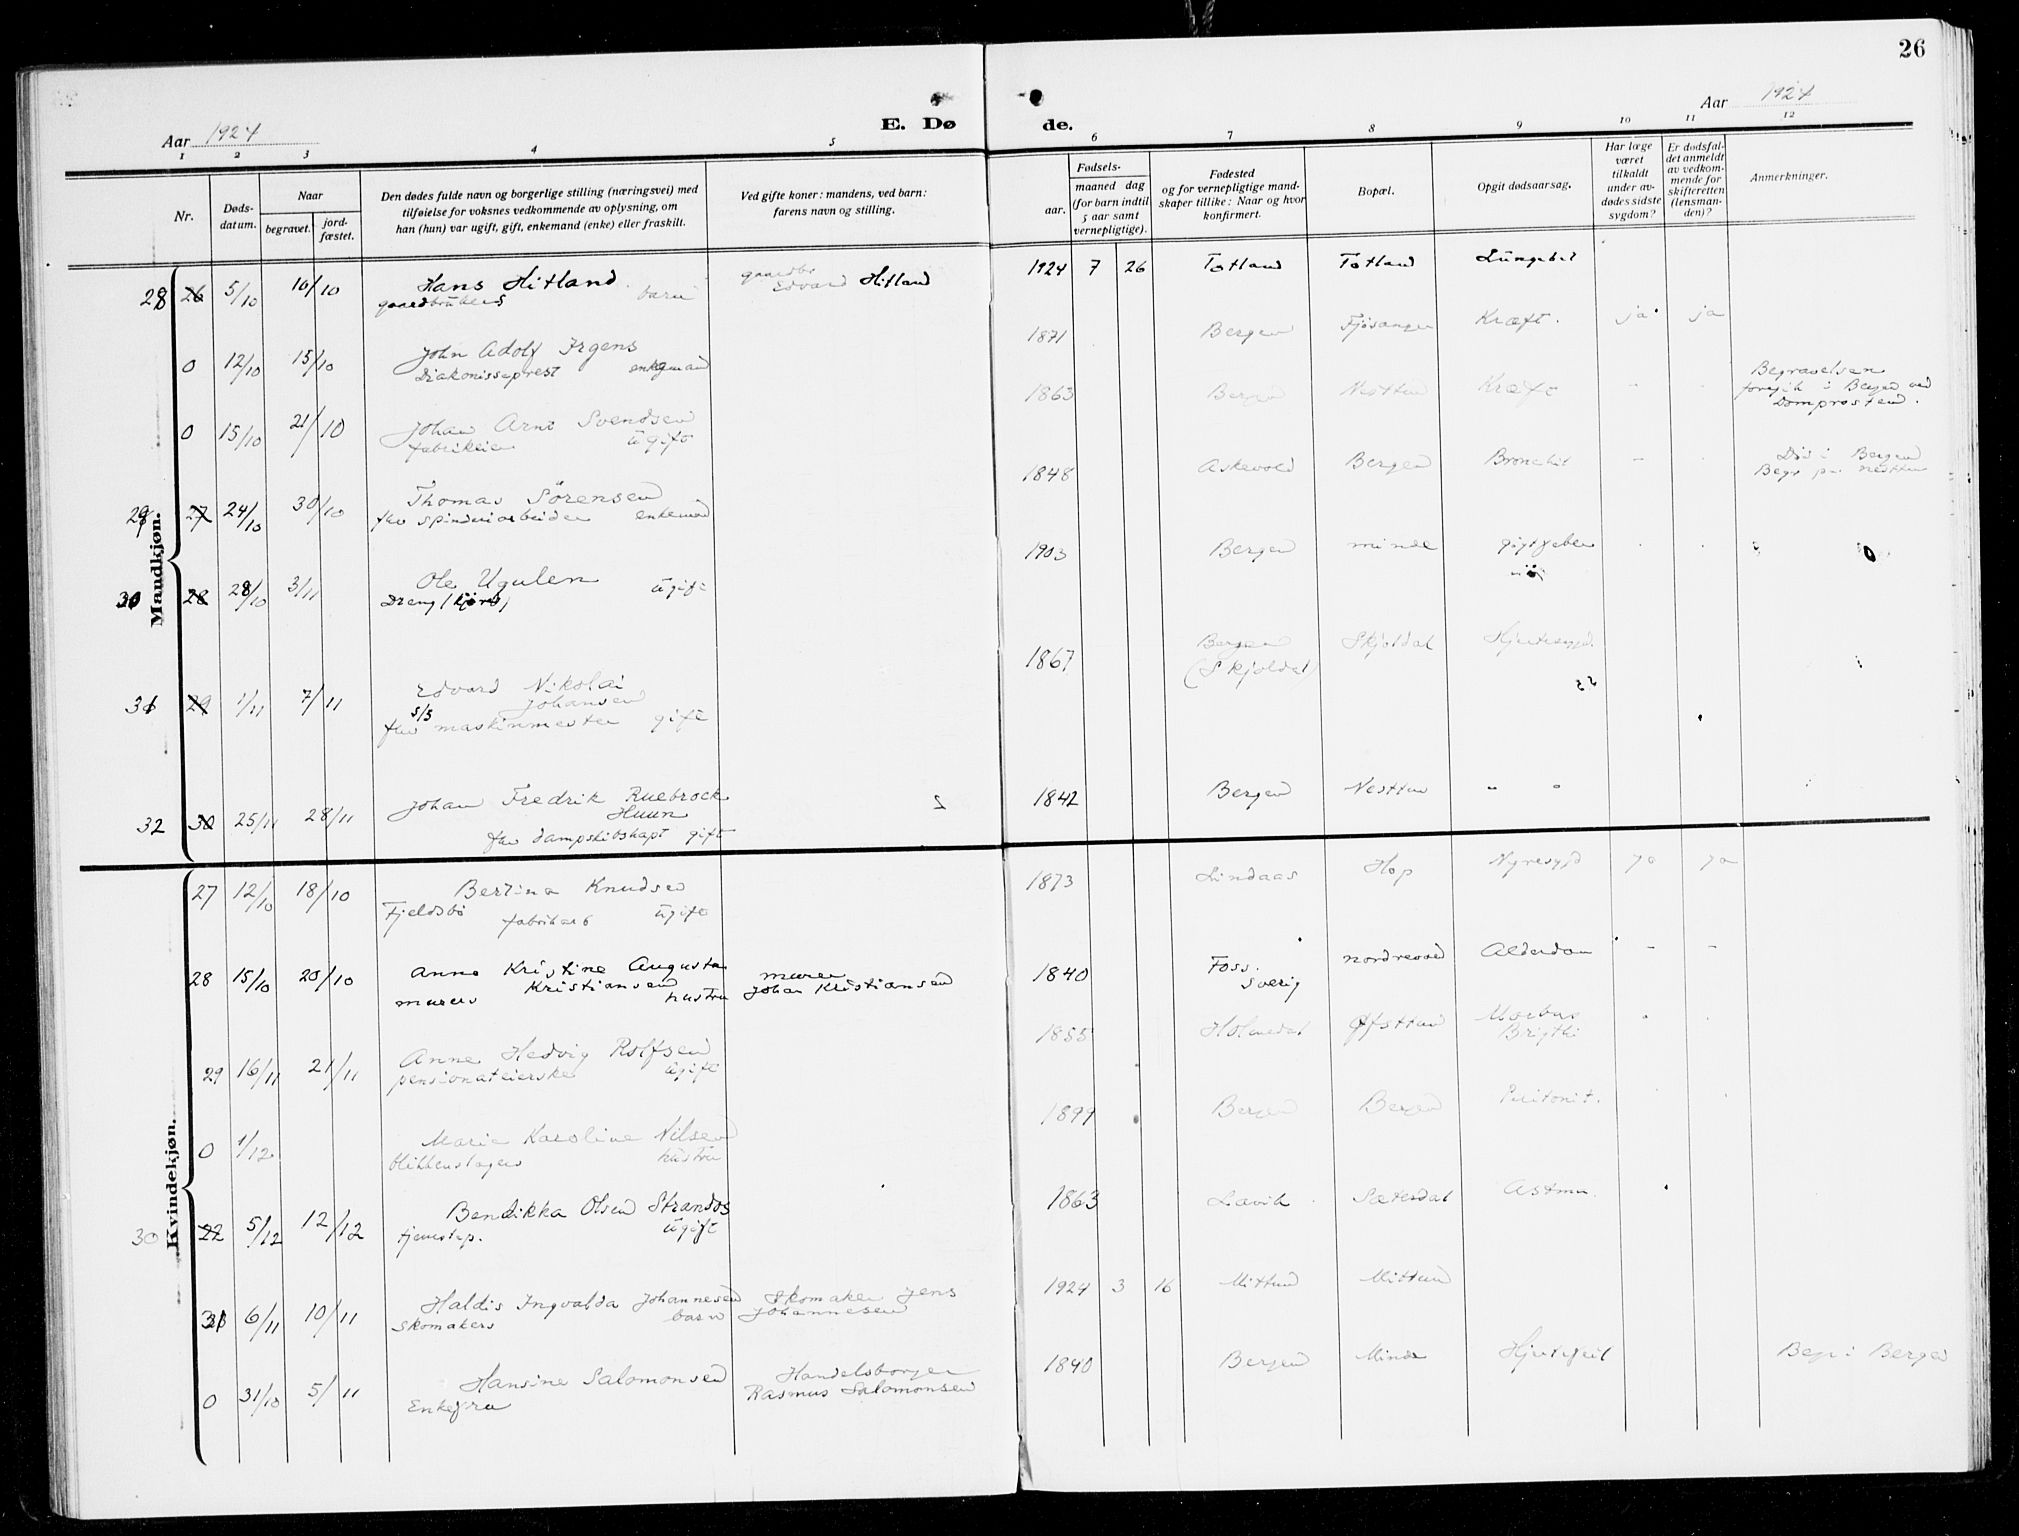 26
Aar 1924
E. Dø
de.
Aar 1924
1 2 3 4 5 6 7 8 9 10 11 12
Nr.
Døds-
datum.
Naar
begravet.
jord-
fæstet.
Den dødes fulde navn og borgerlige stilling (næringsvei) med
tilføielse for voksnes vedkommende av oplysning, om
han (hun) var ugift, gift, enkemand (enke) eller fraskilt.
Ved gifte koner: mandens, ved barn:
farens navn og stilling.
Fødsels-
aar.
maaned dag
(for barn indtil
5 aar samt
vernepligtige).
Fødested
og for vernepligtige mand-
skaper tillike: Naar og hvor
konfirmert.
Bopæl.
Opgit dødsaarsag.
Har læge
været
tilkaldt
under av-
dødes sidste
sygdom?
Er dødsfal-
det anmeldt
av vedkom-
mende for
skifteretten
(lensman-
den)?
Anmerkninger.
Mandkjøn.
28 26 5/10 16/10 Hans Hitland gaardbr 1924 7 26 Totland Totland
gaardbrukers barn Edvard Hitland
0 12/10 15/10 John Adolf Irgens 1871 Bergen Fjøsanger Kræft. ja ja
Diakonisseprest enkemand
0 15/10 21/10 Johan Arnt Svendsen 1863 Bergen Nesttun Kræft " Begravelsen
foregik i Bergen ved
Domprosten.
fabrikeier ugift
27 24/10 30/10 Thomas Sörensen 1848 Askevold Bergen Bronchit - - Död i Bergen
Begr på Nesttun
fhv spinderiarbeider enkemand
30 28 28/10 3/11 Ole Ugulen 1903 Bergen Minde gigtfeber
Dreng ugift
31 29 1/11 7/11 Edvard Nikolai 1867 Bergen Skjoldal
Johansen (Skjoldal)
fhv maskinmester gift
32 30 25/11 28/11 Johan Fredrik Ruebrock 1842 Bergen Nesttun " "
Huun
fhv dampskibskapt gift
Kvindekjøn.
27 12/10 18/10 Bertina Knudsen 1873 Lindaas Hop Nyresygd ja ja
Fjeldsbö fabrikarb ugift
28 15/10 20/10 Anna Kristine Augusta murer 1840 Foss. Nordrevold Alderdom - -
Kristiansen Johan Kristiansen Sverig
murers hustru
29 16/11 21/11 Anne Hedvig Rolfsen 1855 Holmedal Øfsttun Morbus
Brigthi
pensionateierske ugift
0 1/12 Marie Karoline Nilsen 1899 Bergen Bergen Peritonit.
blikkenslagers hustru
30 22 5/12 12/12 Bendikka Olsen Strandos 1863 Lavik Sætersdal Astma.
tjenestep. ugift
31 6/11 10/11 Haldis Ingvalda Johannesen Skomaker Jens 1924 3 16 Mittun Mittun
skomakers barn Johannesen
0 31/10 5/11 Hansine Salomonsen Handelsborger 1840 Bergen Minde Hjertefeil Begr i Bergen
Enkefru Rasmus Salomonsen